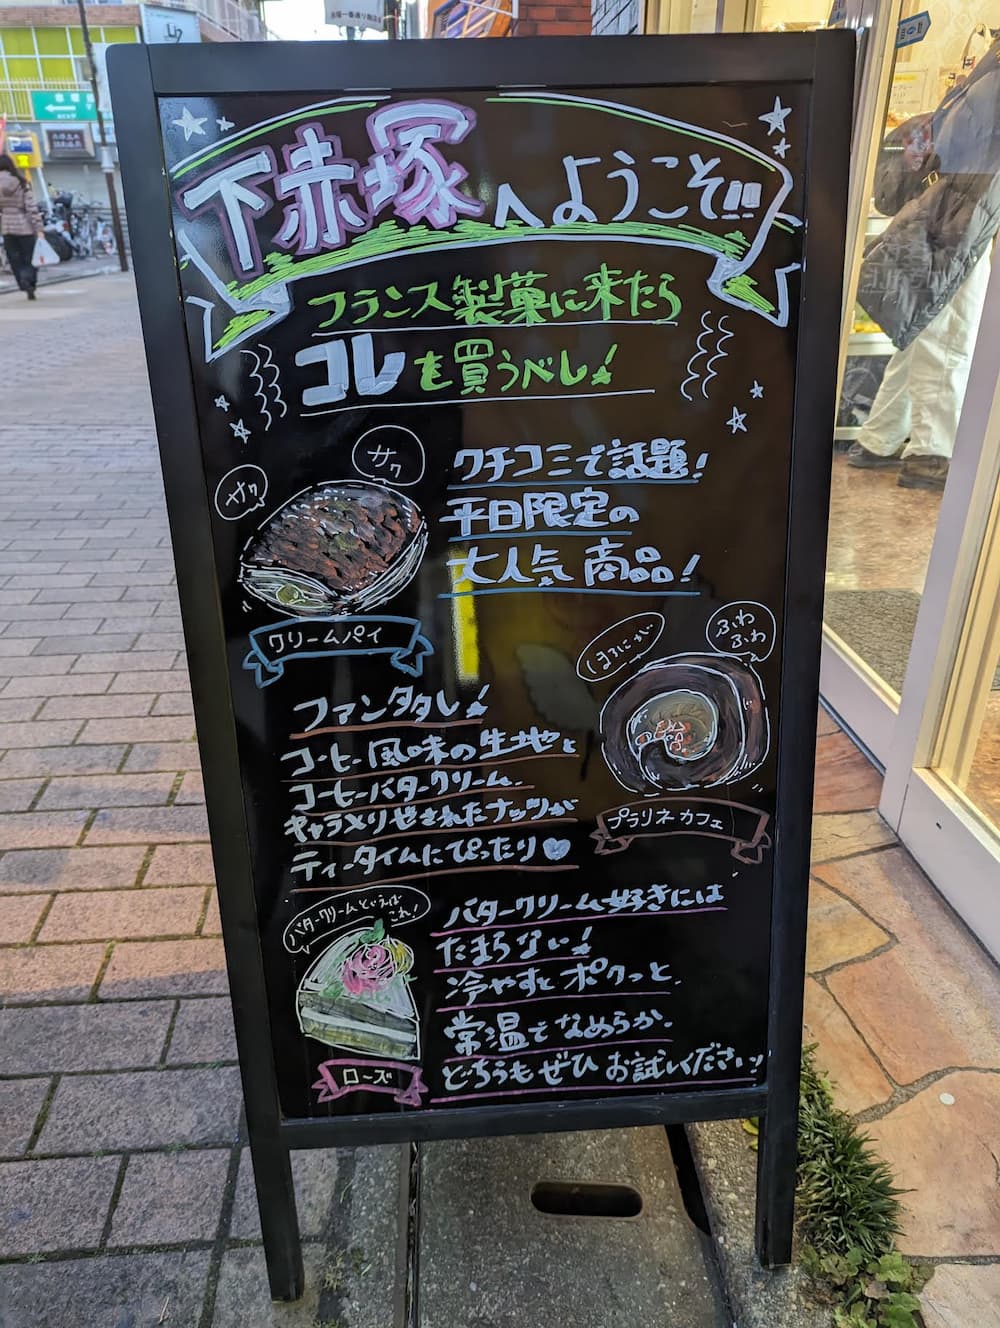 下赤塚へようこそ!!
フランス製菓に来たら
コレも買うべし!
サク
サク
クチコミで話題!
平日限定の
大人気商品!
クリームパイ
ほろにがい
ふわ
ふわ
ファンタタレ!
コーヒー風味の生地と
コーヒーバタークリーム、
キャラメリゼされたナッツが
ティータイムにぴったり♡
プラリネカフェ
バタークリームといえば
これ!
バタークリーム好きには
たまらない!
冷やすとポクっと、
常温でなめらか。
どちらもぜひお試しください!
ローズ